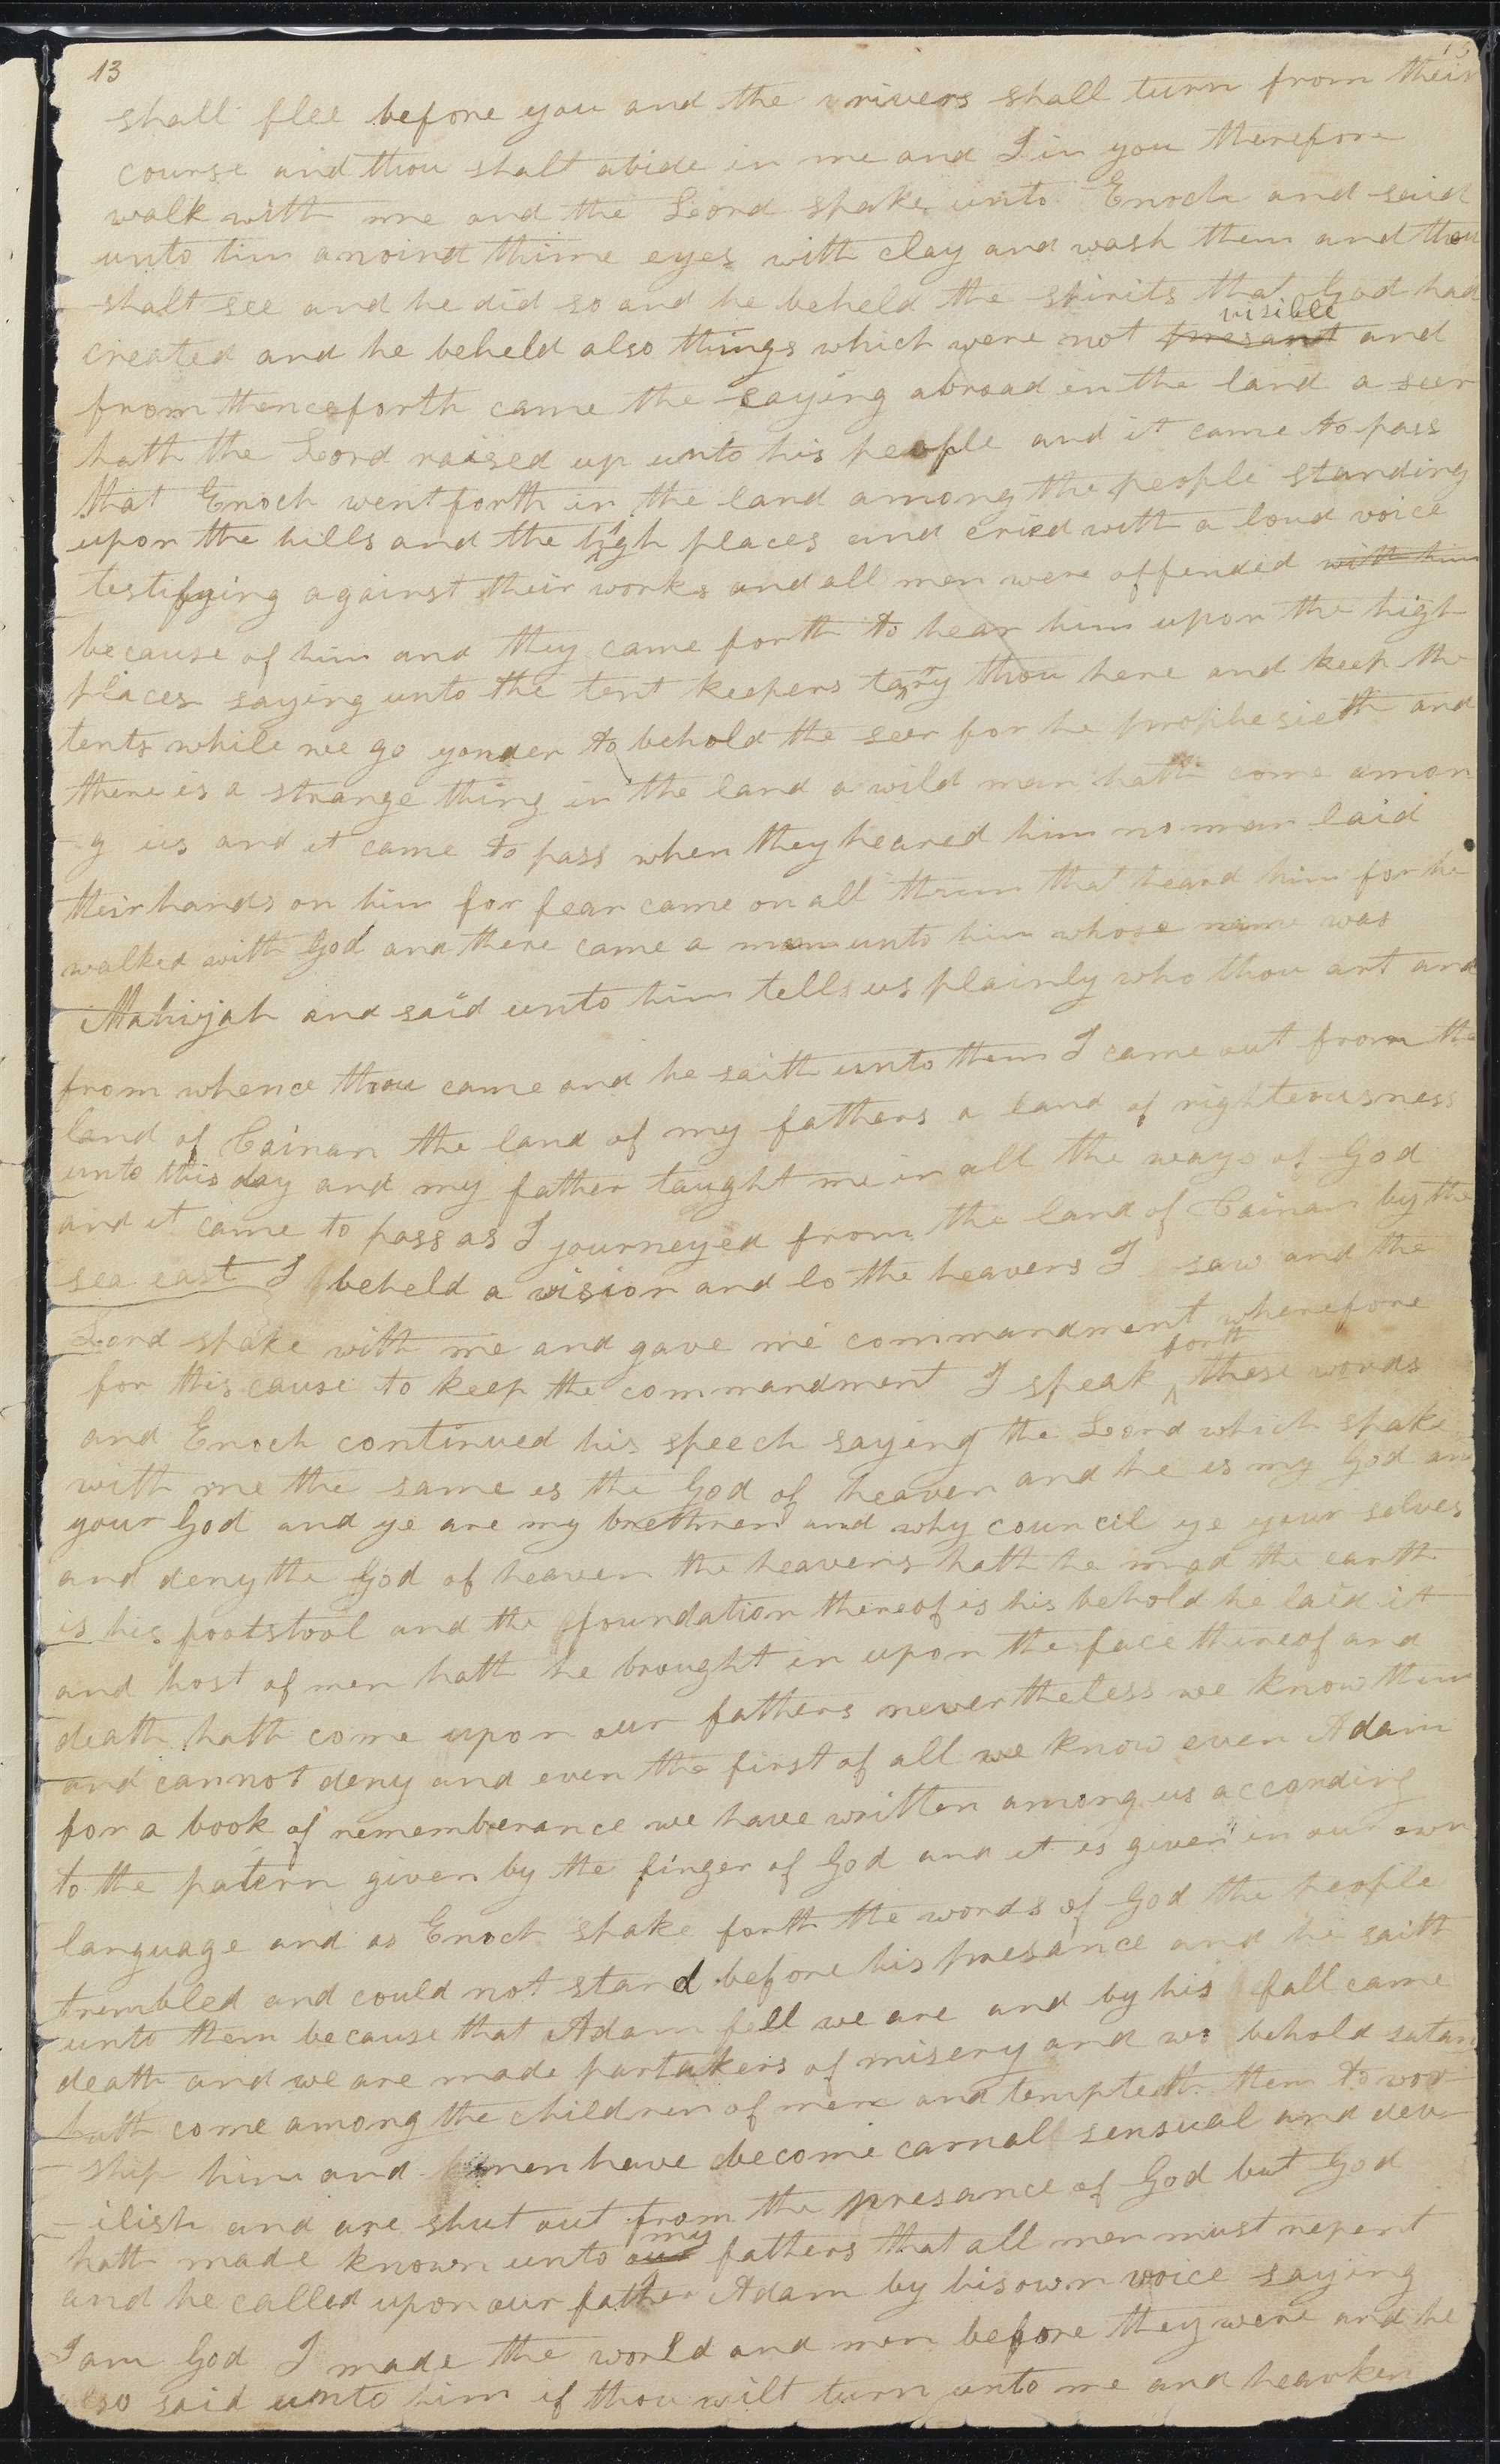 13
shall flee before you and the rivers shall turn from their
course and thou shalt abide in me and I in you therefore
walk with me and the Lord spake unto Enoch and said
unto him anoint thine eyes with clay and wash them and thou
shalt see and he did so and he beheld the spirits that God had
created and he beheld also things which were not presant visible and
from thenceforth came the saying abroad in the land a seer
hath the Lord raised up unto his people and it came to pass
that Enoch went forth in the land among the people standing
upon the hills and the high places and cried with a loud voice
testifying against their works and all men were offended with him
because of him and they came forth to hear him upon the high
places saying unto the tent keepers tarry thou here and keep the
tents while we go yonder to behold the seer for he prophesieth and
there is a strange thing in the land a wild man hath come amon
g us and it came to pass when they heared him no man laid
their hands on him for fear came on all them that heard him for he
walked with God and there came a man unto him whose name was
Mahijah and said unto him tells us plainly who thou art and
from whence thou came and he saith unto them I came out from the
land of Cainan the land of my fathers a land of righteousness
unto this day and my father taught me in all the ways of God
and it came to pass as I journeyed from the land of Cainan by the
sea east I beheld a vision and lo the heavens I saw and the
Lord spake with me and gave me commandment wherefore
for this cause to keep the commandment I speak forth these words
and Enoch continued his speech saying the Lord which spake
with me the same is the God of heaven and he is my God and
your God and ye are my brethren and why council ye your selves
and deny the God of heaven the heavens hath he mad the earth
is his footstool and the foundation thereof is his behold he laid it
and host of men hath he brought in upon the face thereof and
death hath come upon our fathers nevertheless we know them
and cannot deny and even the first of all we know even Adam
for a book of rememberance we have written among us according
to the patern given by the finger of God and it is given in our own
language and as Enoch spake forth the words of God the people
trembled and could not stand before his presance and he saith
unto them because that Adam fell we are and by his fall came
death and we are made partakers of misery and wo behold satan
hath come among the children of men and tempteth them to wor
ship him and men have become carnall sensual and dev
ilish and are shut out from the presance of God but God
hath made known unto our my fathers that all men must repent
and he called upon our father Adam by his own voice saying
I am God I made the world and men before they were and he
also said unto him if thou wilt turn unto me and hearken